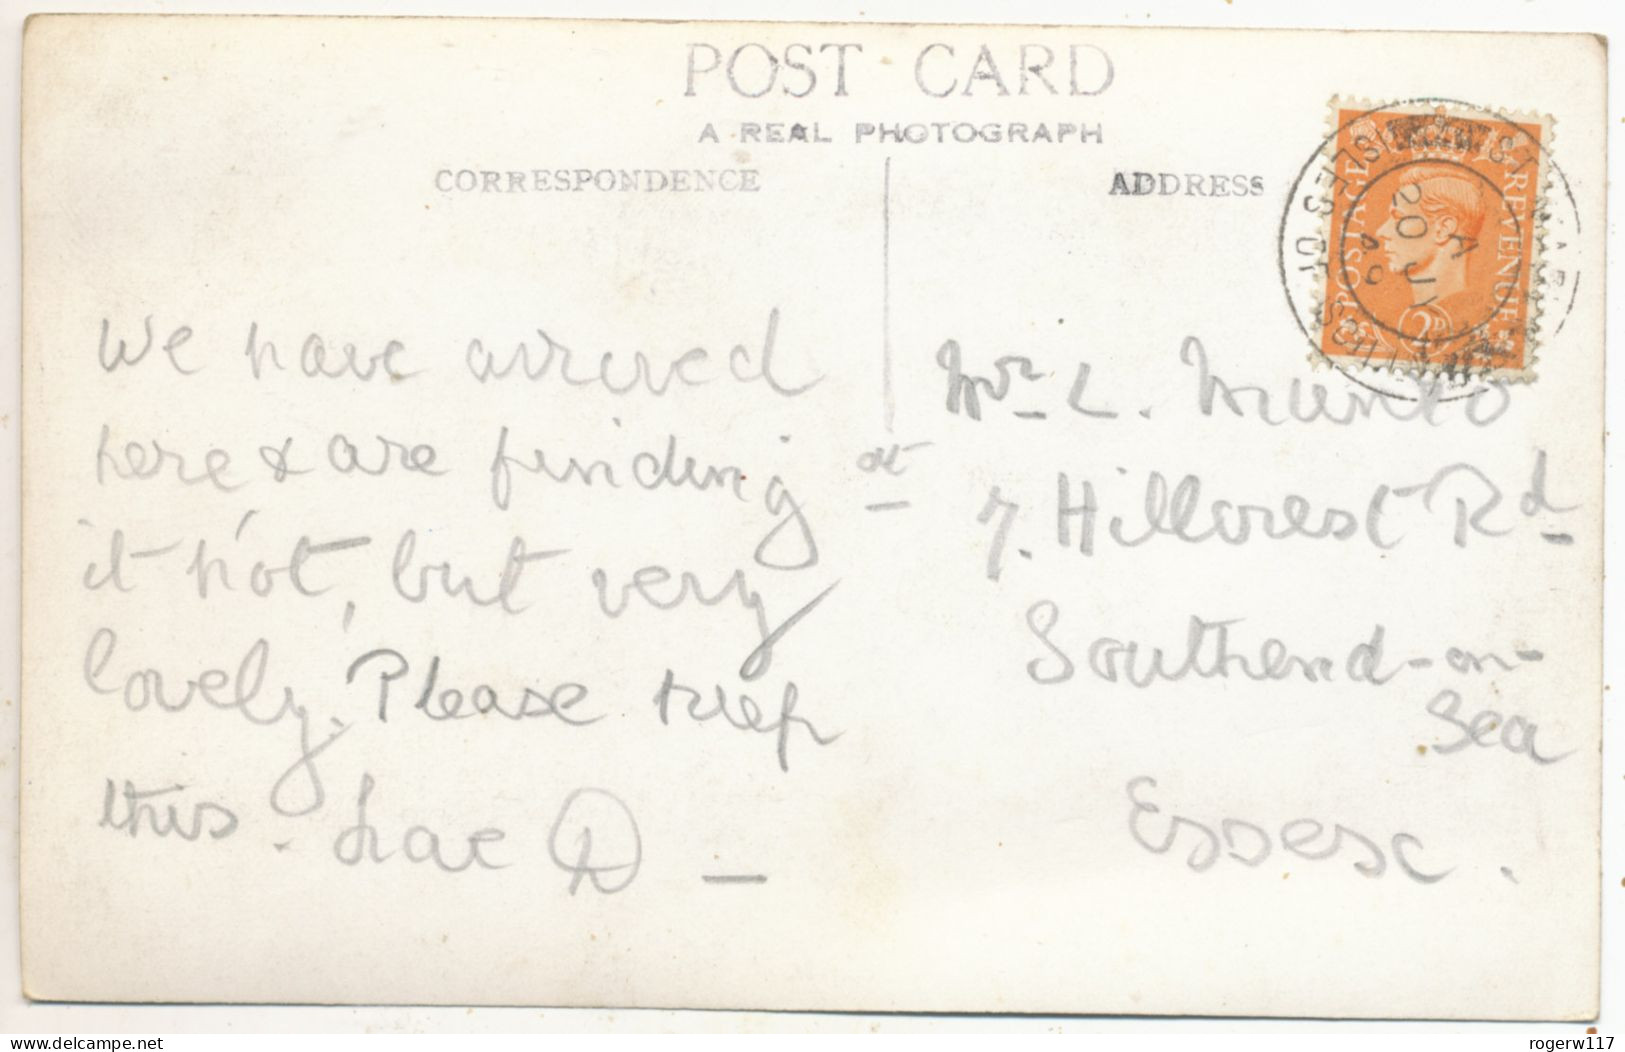 POST CARD
A REAL PHOTOGRAPH
CORRESPONDENCE
ADDRESS
POSTAGE REVENUE
2D
ST. MARYS
ISLES OF SCILLY
A
20 JY
49
We have arrived
here & are finding
it hot, but very
lovely. Please keep
this.
Mr. L. Munro
at 7. Hillcrest Rd
Southend-on-
Sea
Essex.
www.delcampe.net
rogerw117